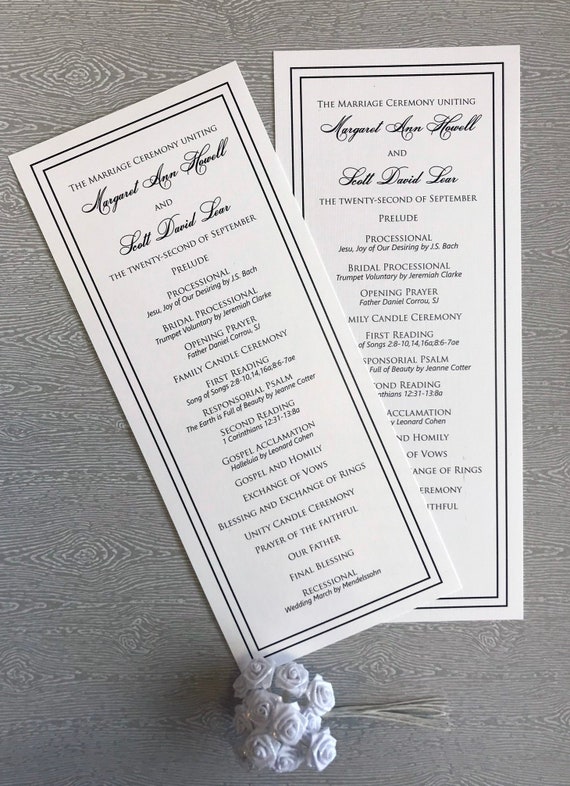 The Marriage Ceremony uniting
Margaret Ann Howell
and
Scott David Lear
the twenty-second of September
Prelude
Processional
Jesu, Joy of Our Desiring by J.S. Bach
Bridal Processional
Trumpet Voluntary by Jeremiah Clarke
Opening Prayer
Father Daniel Corrou, SJ
Family Candle Ceremony
First Reading
Song of Songs 2:8-10,14,16a;8:6-7ae
Responsorial Psalm
The Earth is Full of Beauty by Jeanne Cotter
Second Reading
1 Corinthians 12:31-13:8a
Gospel Acclamation
Halleluia by Leonard Cohen
Gospel and Homily
Exchange of Vows
Blessing and Exchange of Rings
Unity Candle Ceremony
Prayer of the Faithful
Our Father
Final Blessing
Recessional
Wedding March by Mendelssohn
The Marriage Ceremony uniting
Margaret Ann Howell
and
Scott David Lear
the twenty-second of September
Prelude
Processional
Jesu, Joy of Our Desiring by J.S. Bach
Bridal Processional
Trumpet Voluntary by Jeremiah Clarke
Opening Prayer
Father Daniel Corrou, SJ
mily Candle Ceremony
First Reading
of Songs 2:8-10,14,16a;8:6-7ae
esponsorial Psalm
is Full of Beauty by Jeanne Cotter
cond Reading
thians 12:31-13:8a
Acclamation
by Leonard Cohen
and Homily
e of Vows
xchange of Rings
Ceremony
ithful